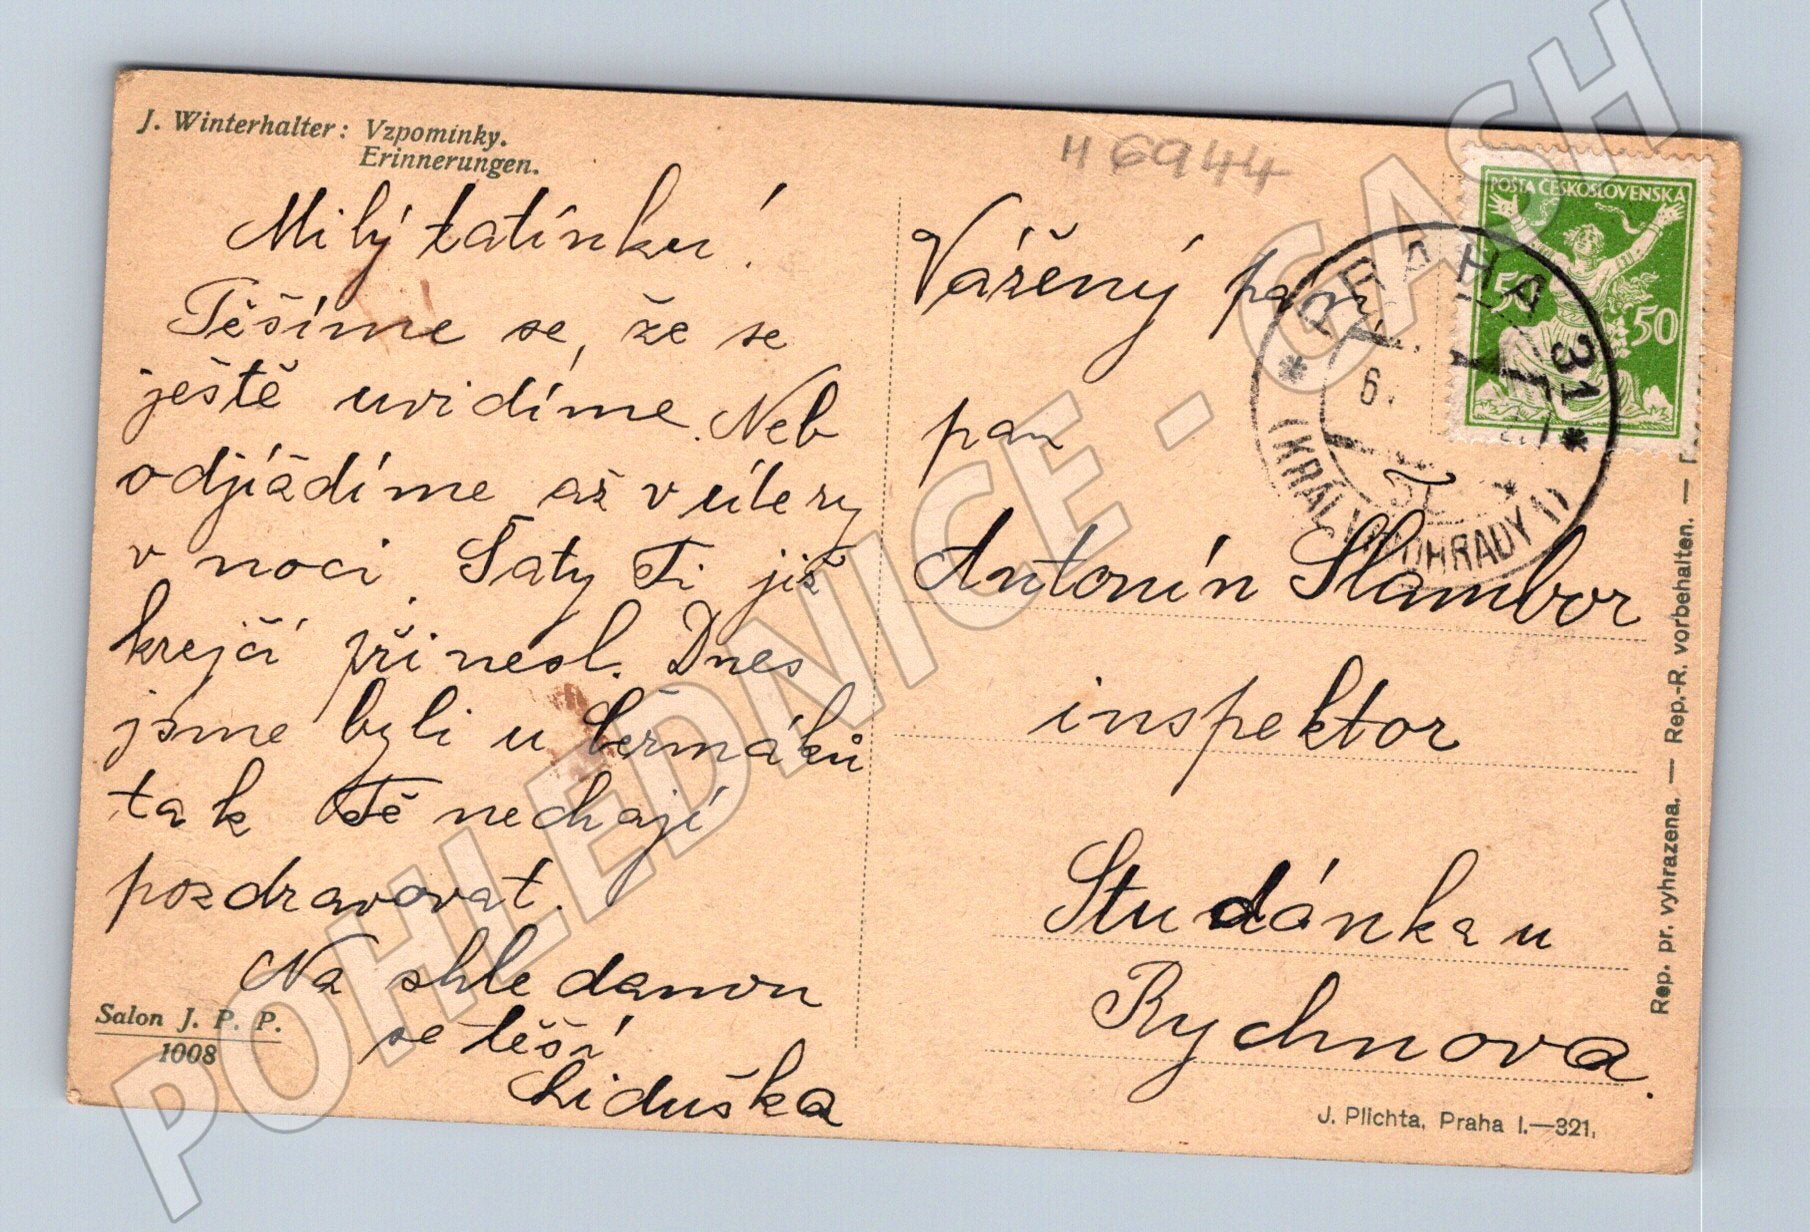 J. Winterhalter: Vzpomínky.
Erinnerungen.
Milý tatínku!
Těšíme se, že se
ještě uvidíme. Neb
odjíždíme až v úterý
v noci. Šaty Ti již
krejčí přinesl. Dnes
jsme byli u Čermáků
tak Tě nechají
pozdravovat.
Na shledanou
se těší
Liduška
Salon J. P. P.
1008
H 6944
Vážený pan
pan
Antonín Slambor
inspektor
Studánka u
Rychnova.
POŠTA ČESKOSLOVENSKÁ
50 50
PRAHA 31
6.
(KRÁL. VINOHRADY 1)
Rep. pr. vyhrazena. — Rep.-R. vorbehalten. —
J. Plichta, Praha I.—321.
POHLEDNICE - CASH